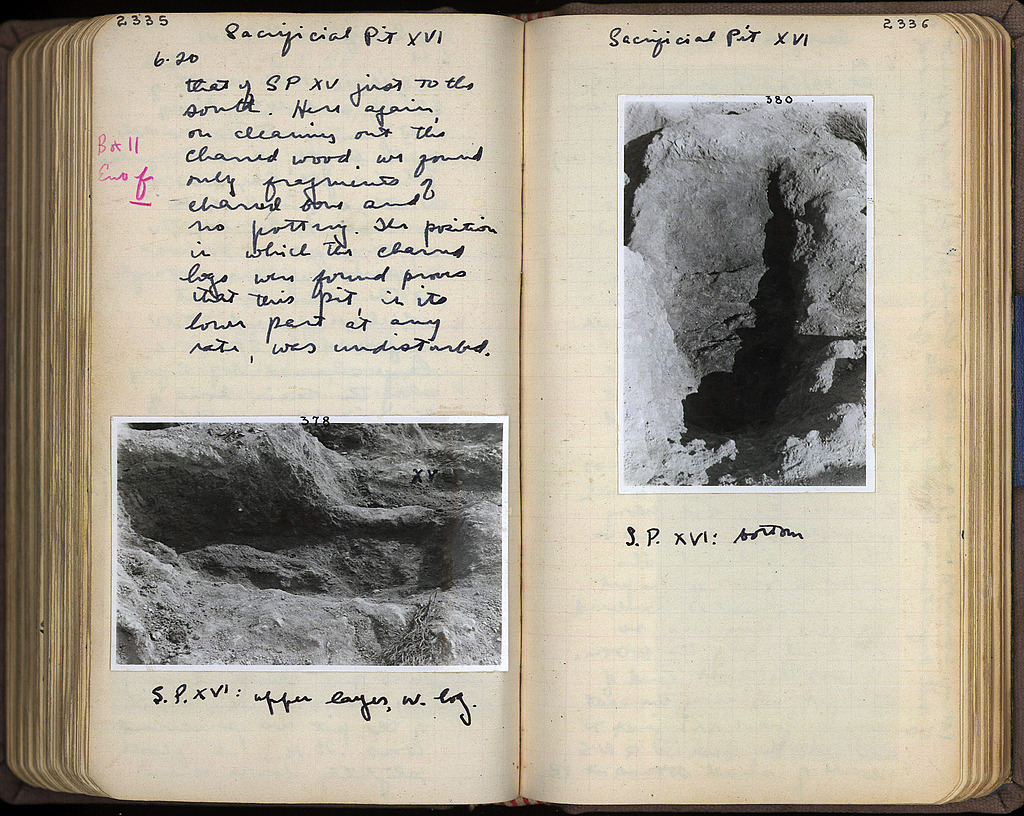 2335
Sacrificial Pit XVI
6·20
that of SP XV just to the
south. Here again,
on cleaning out the
charred wood, we found
only fragments of
charred bone and
no pottery. The position
in which the charred
logs were found proves
that this pit, in its
lower part at any
rate, was undisturbed.
Box 11
End f.
378
XV
S.P. XVI: upper layer, w. log.
2336
Sacrificial Pit XVI
380
S.P. XVI: bottom